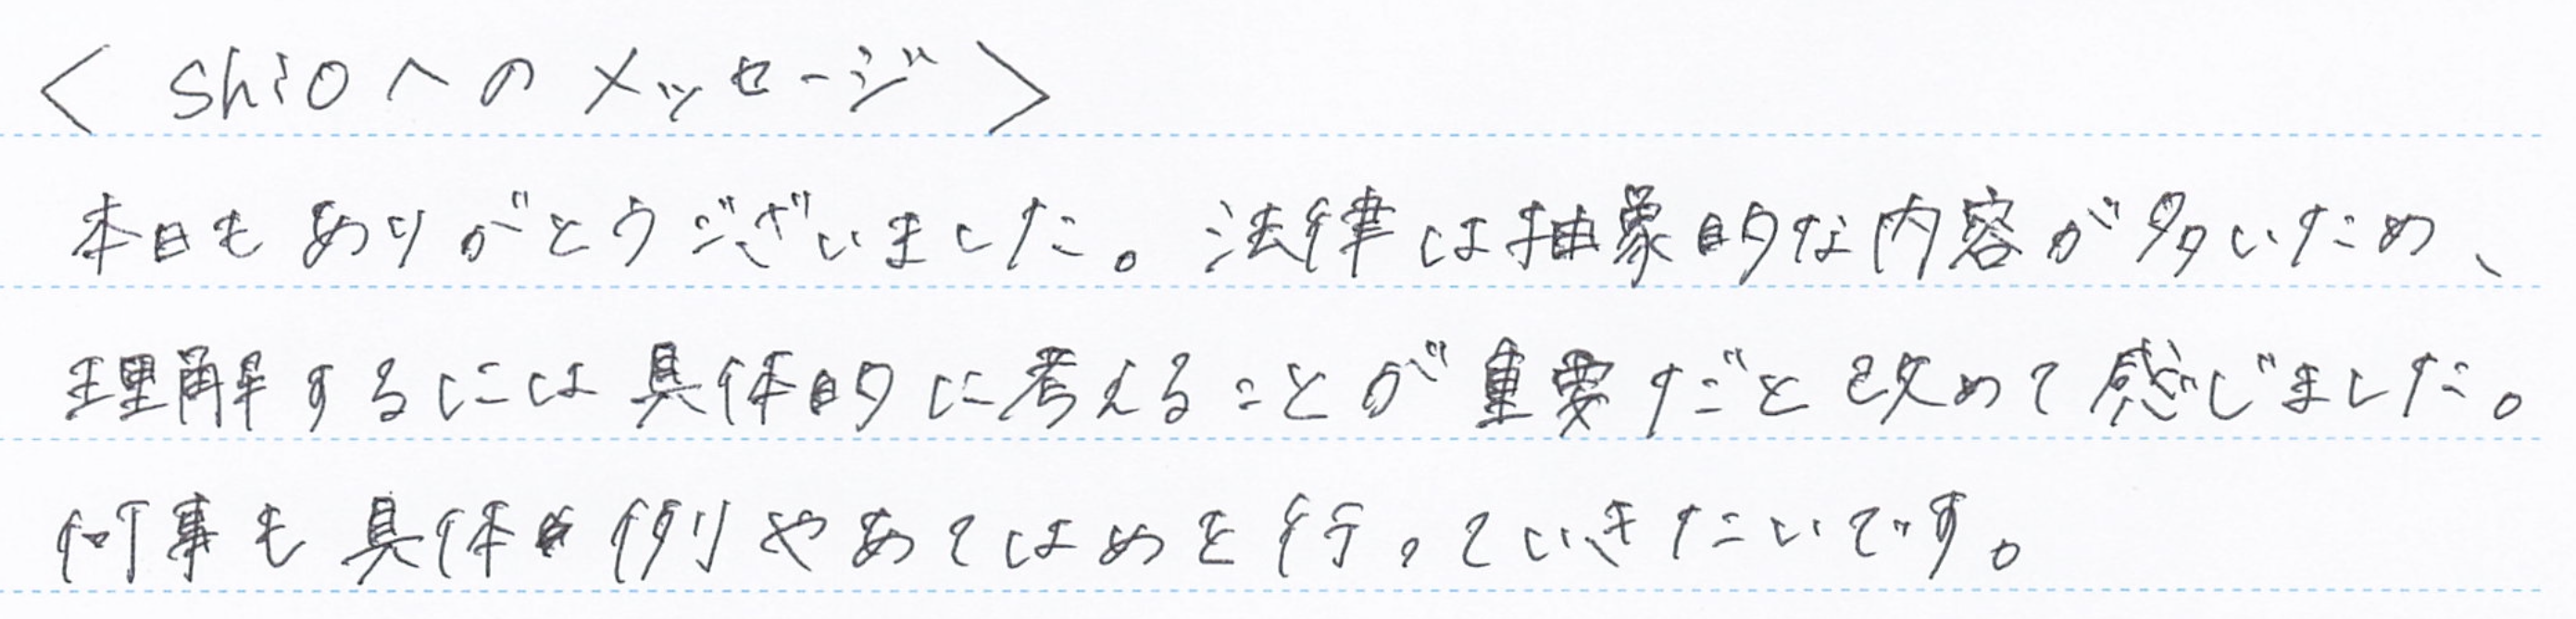 < shioへのメッセージ >
本日もありがとうございました。法律は抽象的な内容が多いため、
理解するには具体的に考えることが重要だと改めて感じました。
何事も具体例やあてはめを行っていきたいです。